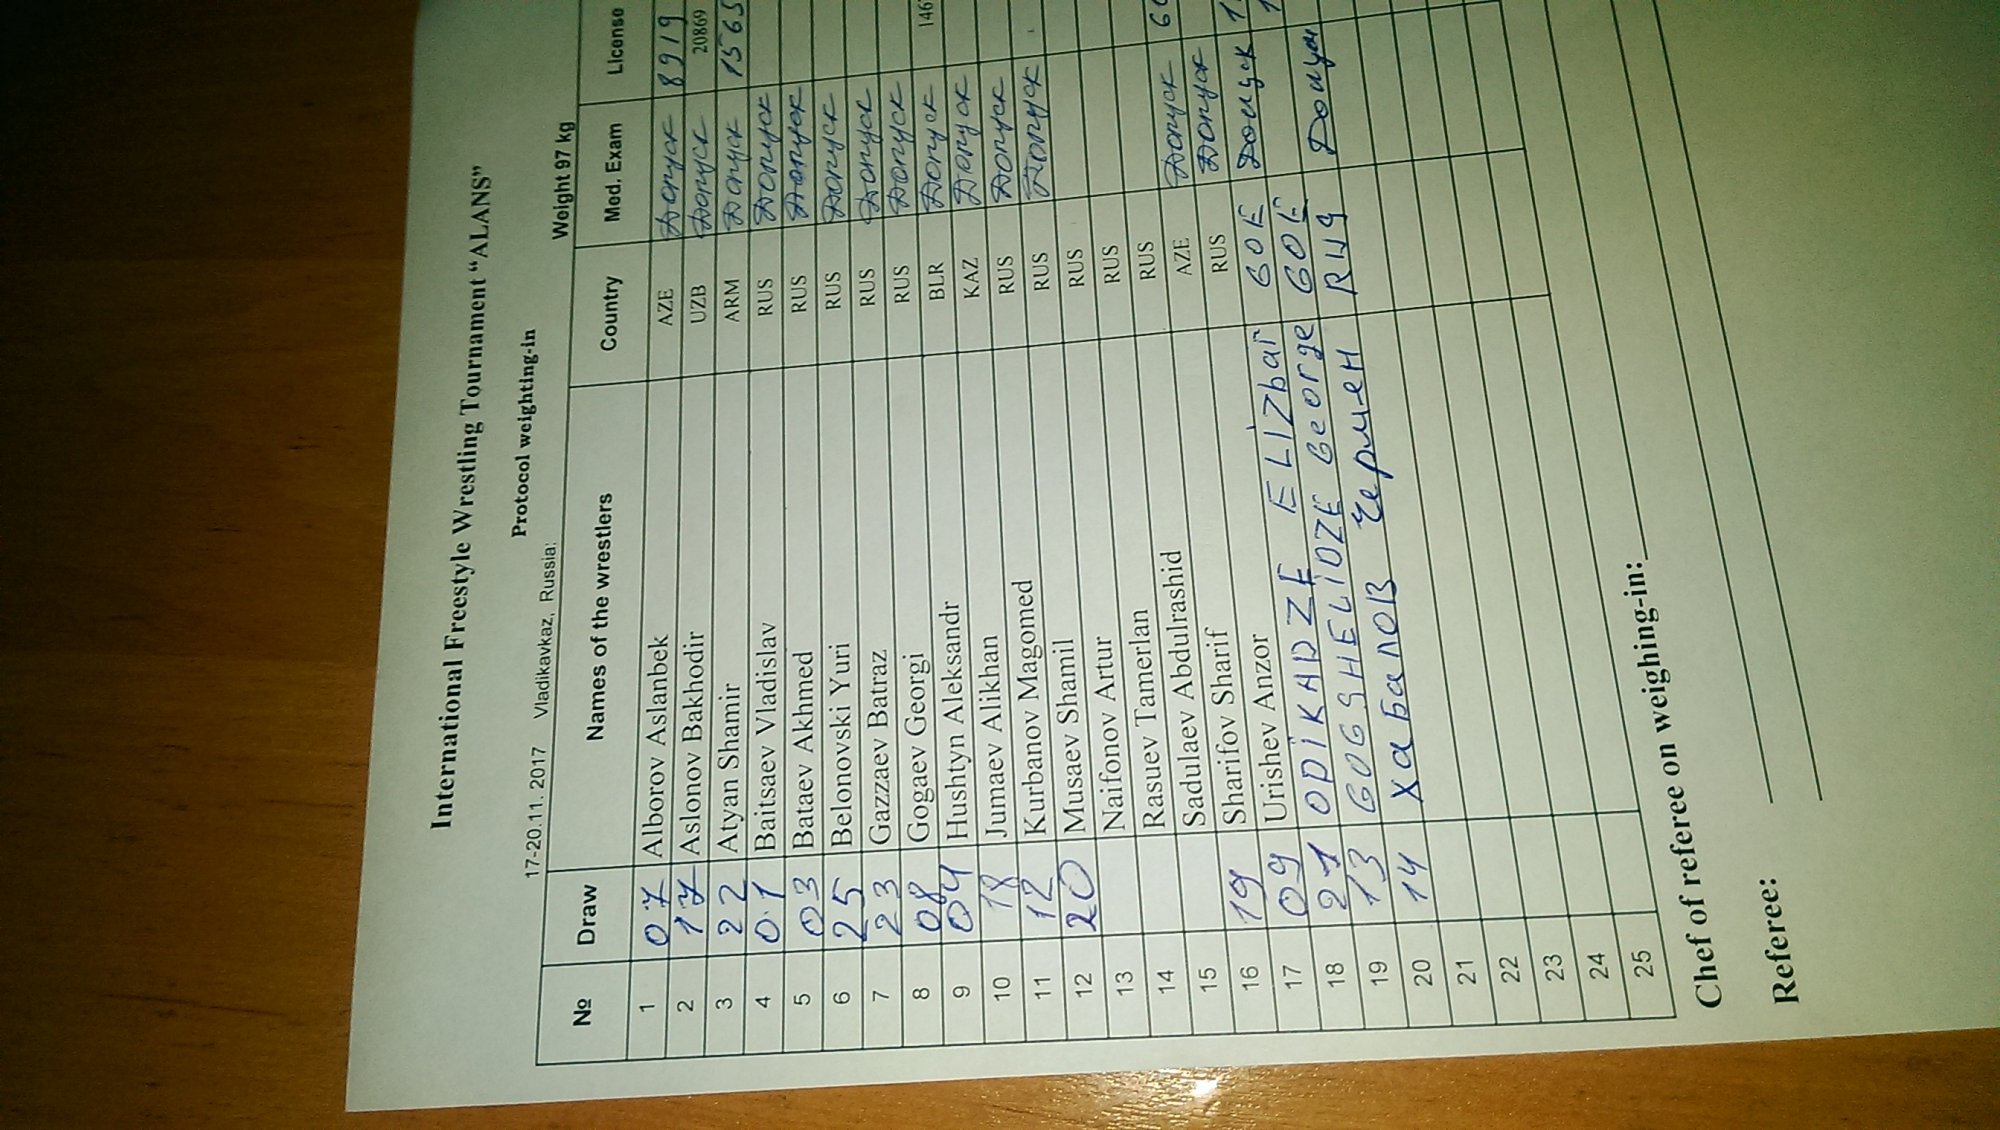 International Freestyle Wrestling Tournament “ALANS”
Protocol weighting-in
17-20.11. 2017 Vladikavkaz, Russia: Weight 97 kg
№ Draw Names of the wrestlers Country Med. Exam License
1 07 Alborov Aslanbek AZE Допуск 8919
2 17 Aslonov Bakhodir UZB Допуск 20869
3 22 Atyan Shamir ARM Допуск 1565
4 01 Baitsaev Vladislav RUS Допуск
5 03 Bataev Akhmed RUS Допуск
6 25 Belonovski Yuri RUS Допуск
7 23 Gazzaev Batraz RUS Допуск
8 08 Gogaev Georgi RUS Допуск
9 04 Hushtyn Aleksandr BLR Допуск 146
10 18 Jumaev Alikhan KAZ Допуск
11 12 Kurbanov Magomed RUS Допуск
12 20 Musaev Shamil RUS Допуск
13 Naifonov Artur RUS
14 Rasuev Tamerlan RUS
15 Sadulaev Abdulrashid RUS
16 19 Sharifov Sharif AZE Допуск
17 09 Urishev Anzor RUS Допуск
18 21 ODIKADZE ELIZbar GOE Допуск
19 13 GOGSHELIDZE George GOE
20 14 Хабалов Чермен Допуск
21
22
23
24
25
Chef of referee on weighing-in:
Referee: